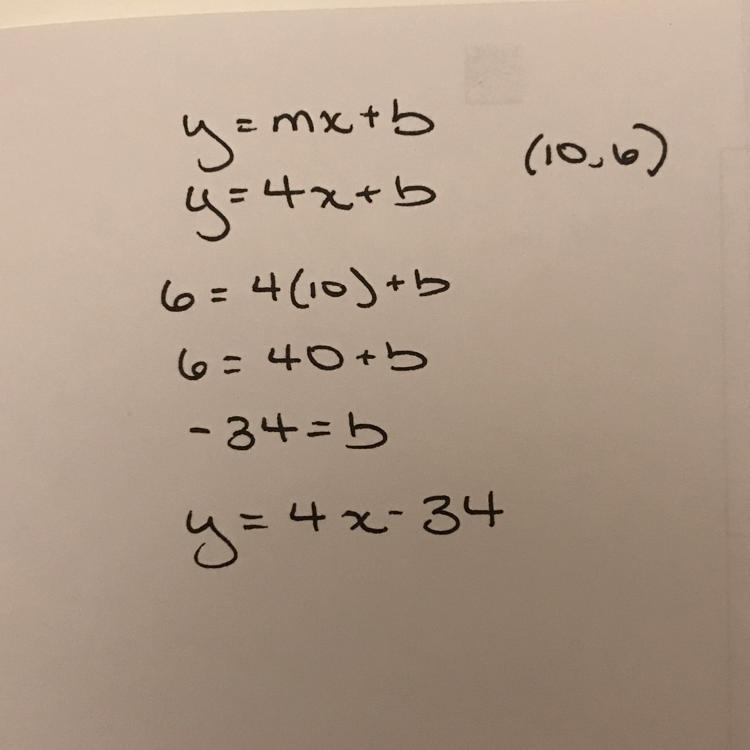 y = mx + b
(10, 6)
y = 4x + b
6 = 4(10) + b
6 = 40 + b
- 34 = b
y = 4x - 34